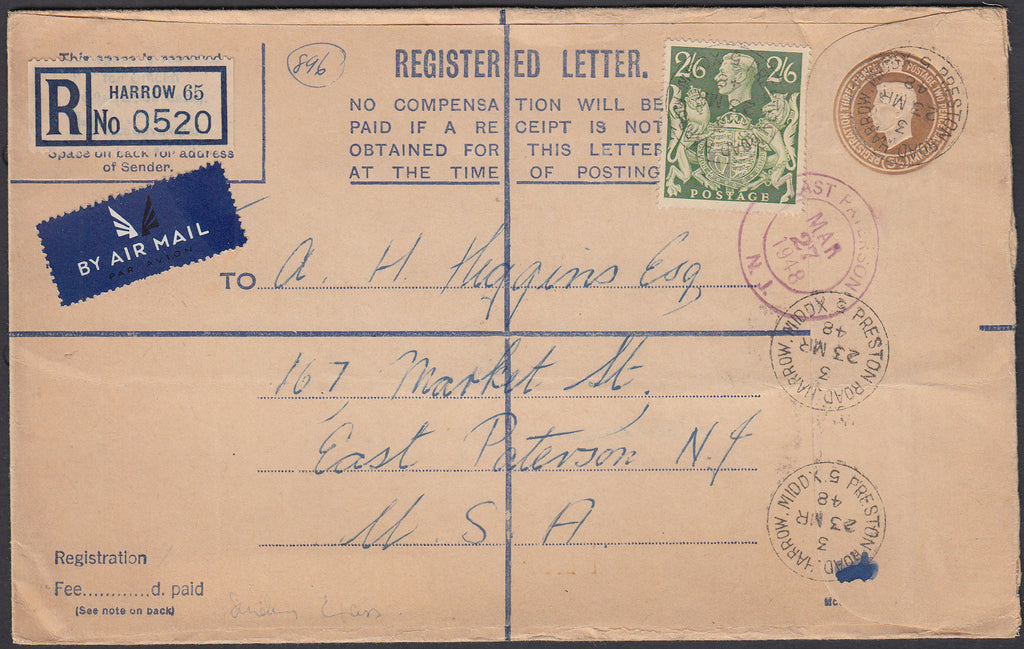 REGISTERED LETTER.
896
This space is reserved
R HARROW 65
No 0520
Space on back for address
of Sender.
NO COMPENSATION WILL BE
PAID IF A RECEIPT IS NOT
OBTAINED FOR THIS LETTER
AT THE TIME OF POSTING
2/6 2/6
POSTAGE
PRESTON ROAD. HARROW. MIDDX. 5
3
23 MR
48
EAST PATERSON
MAR
27
1948
N. J.
BY AIR MAIL
PAR AVION
TO A. H. Higgins Esq
167, Market St.
East Paterson N.J
U S A
PRESTON ROAD. HARROW. MIDDX. 5
3
23 MR
48
PRESTON ROAD. HARROW. MIDDX. 5
3
23 MR
48
Registration
Fee............d. paid
(See note on back)